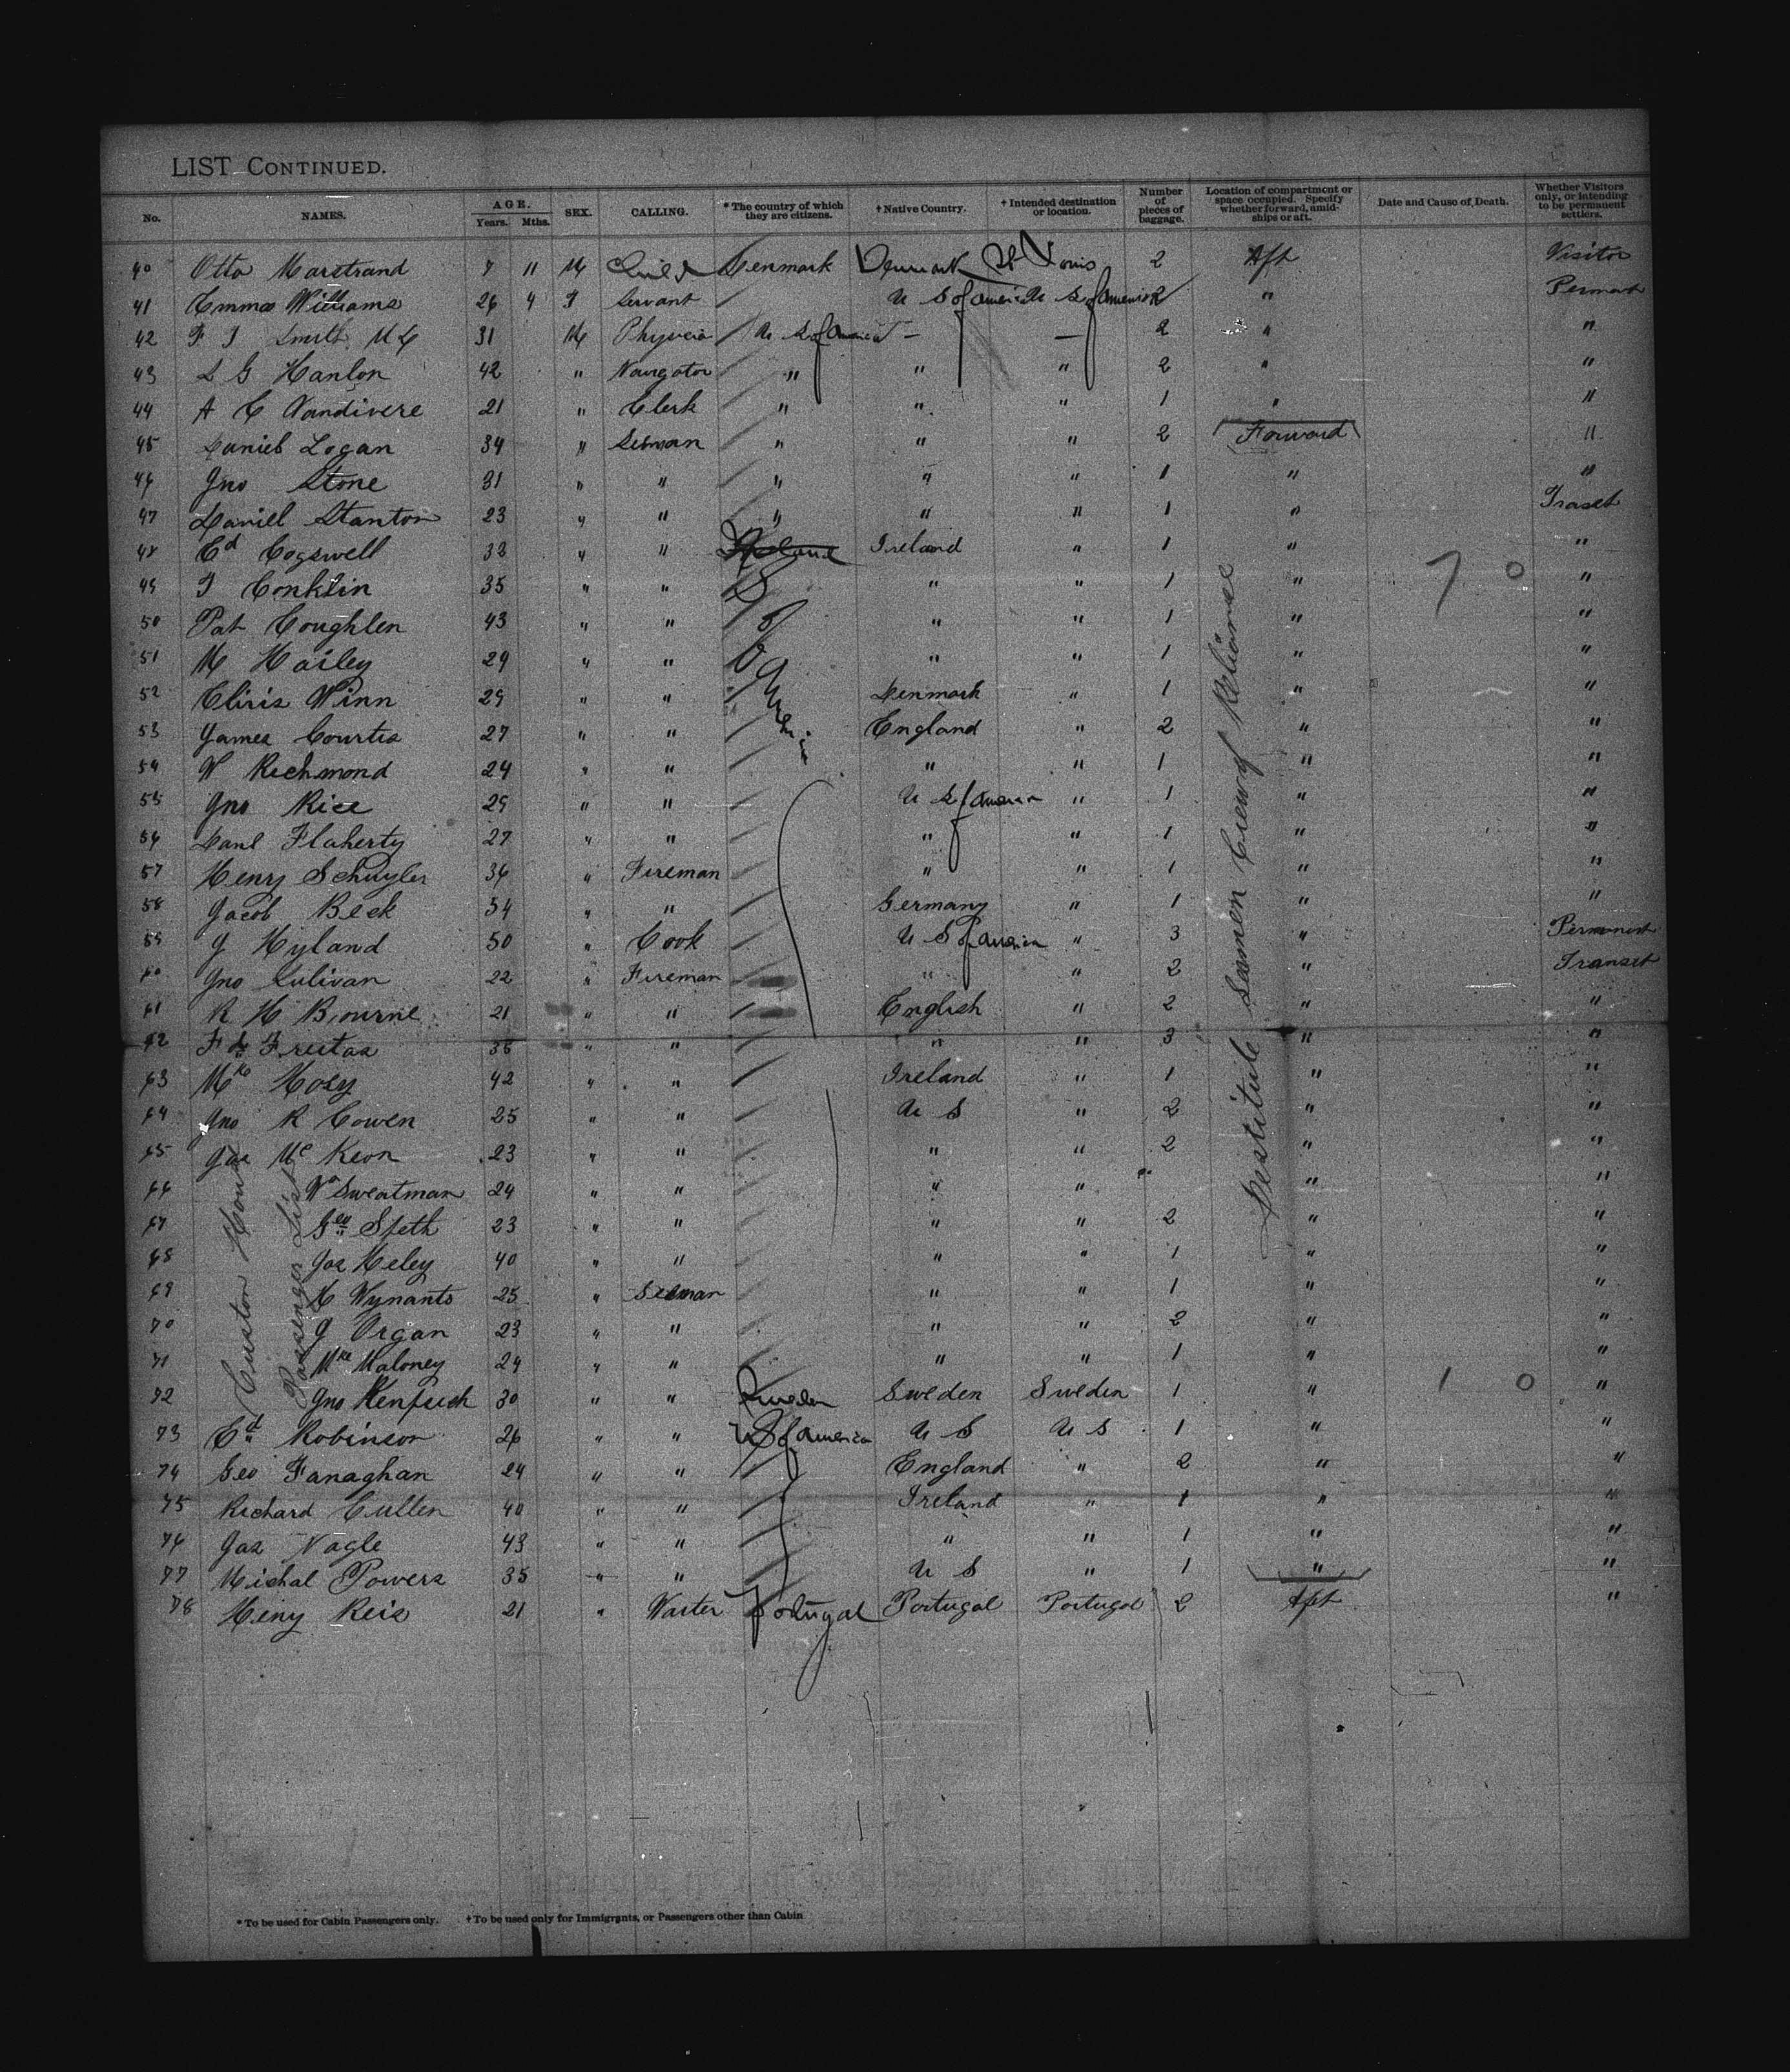 LIST CONTINUED.
No. NAMES. AGE. Years. Mths. SEX. CALLING. * The country of which they are citizens. † Native Country. † Intended destination or location. Number of pieces of baggage. Location of compartment or space occupied. Specify whether forward, amidships or aft. Date and Cause of Death. Whether Visitors only, or intending to be permanent settlers.
40 Otto Marstrand 7 11 M Child Denmark Denmark St Louis 2 Aft Visitor
41 Emma Williams 26 4 F Servant U S of America U S of America 2 "
42 F J Smith 31 M U S of America — 2 " "
43 L G Hanlon 42 " Navigator " " " 2 " "
44 A C Vandivere 21 " Clerk " " " 1 " "
45 Daniel Logan 34 " Seaman " " " 2 Forward "
46 Jno Stone 31 " " " " " 1 " "
47 Daniel Stanton 23 " " " " " 1 "
48 Ed Cogswell 32 " " Ireland Ireland " 1 " "
49 T Conklin 35 " " " " 1 " 7 0 "
50 Pat Coughlen 43 " " " " 1 " "
51 M Hailey 29 " " " " 1 " "
52 Winn 29 " " Denmark " 1 " "
53 James Courtis 27 " " England " 2 " "
54 W Richmond 24 " " " " 1 " "
55 Jno Rice 29 " " U S of America " 1 " "
56 Danl Flaherty 27 " " " " 1 " "
57 Henry Schuyler 36 " Fireman " " 1 " "
58 Jacob Beck 34 " " Germany " 1 " "
59 J Hyland 50 " Cook U S of America " 3 " Permanent
60 Jno Sulivan 22 " Fireman " " 2 " Transit
61 R H Bourne 21 " " English " 2 " "
62 Freitas 38 " " " " 3 " "
63 Mke Hoey 42 " " Ireland " 1 " "
64 Jno R Cowen 25 " " U S " 2 " "
65 Jas Mc Keon 23 " " " " 2 " "
66 Wm Sweatman 24 " " " " " "
67 Geo Speth 23 " " " " 2 " "
68 Jas Heley 40 " " " " 1 " "
69 Wynants 25 " Seaman " " 1 " "
70 J Organ 23 " " " " 2 " "
71 Mke Maloney 24 " " " " 1 " "
72 Jno 30 " " Sweden Sweden Sweden 1 " 1 0 "
73 Ed Robinson 26 " " U S of America U S U S 1 " "
74 Geo Fanaghan 24 " " England " 2 " "
75 Richard Cullen 40 " " Ireland " 1 " "
76 Jas Nagle 43 " " " " 1 " "
77 Michal Powers 35 " " U S " 1 " "
78 Heny Reis 21 " Waiter Portugal Portugal Portugal 2 Aft "
U S of America
Destitute Seamen Crew of Reliance
Custom House
Passenger List
* To be used for Cabin Passengers only. † To be used only for Immigrants, or Passengers other than Cabin